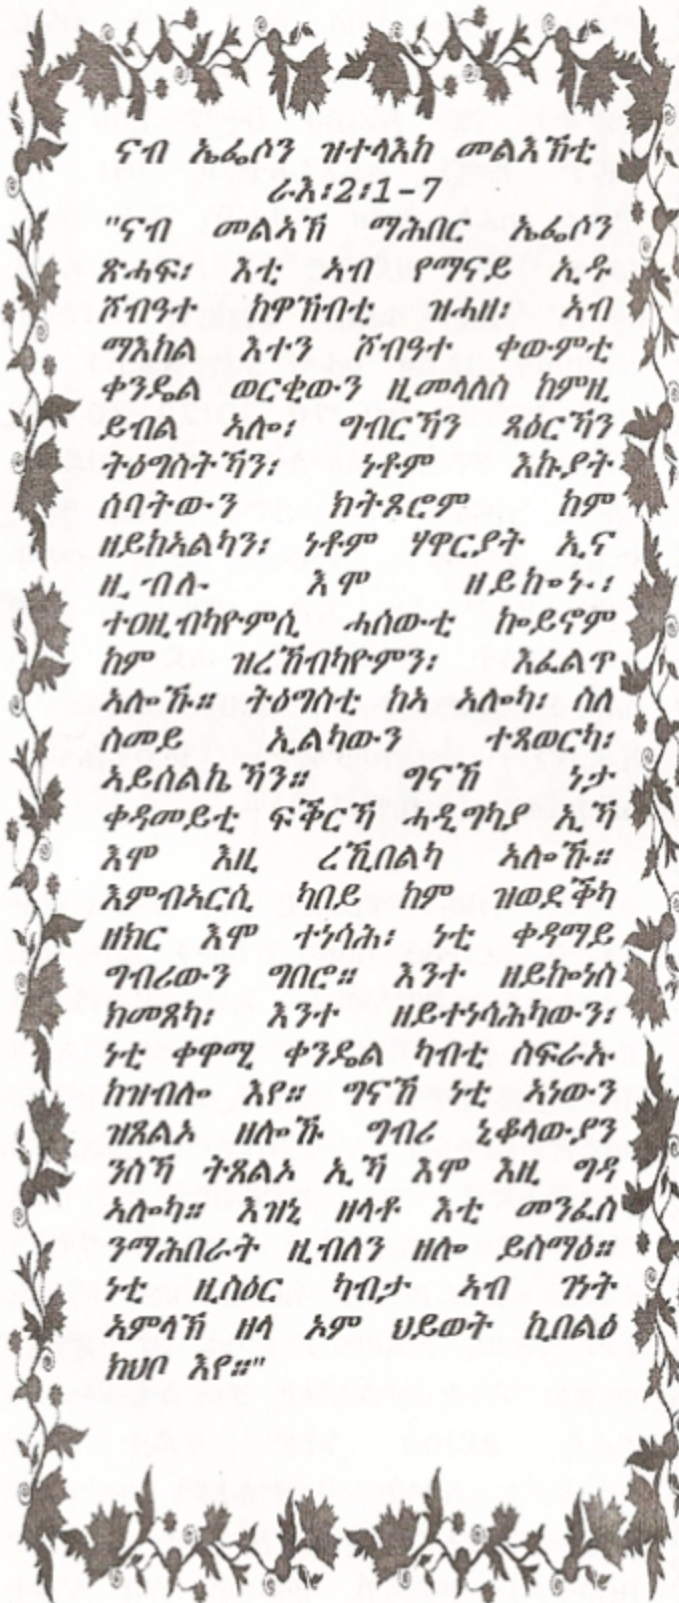 ናብ ኤፌሶን ዝተላእከ መልእኽቲ
ራእ፡2፡1-7
"ናብ መልኣኽ ማሕበር ኤፌሶን
ጽሓፍ፡ እቲ ኣብ የማናይ ኢዱ
ሾብዓተ ከዋኽብቲ ዝሓዘ፡ ኣብ
ማእከል እተን ሾብዓተ ቀወምቲ
ቀንዴል ወርቂውን ዚመላለስ ከምዚ
ይብል ኣሎ፡ ግብርኻን ጻዕርኻን
ትዕግስትኻን፡ ነቶም እኩያት
ሰባትውን ክትጾሮም ከም
ዘይከኣልካን፡ ነቶም ሃዋርያት ኢና
ዚብሉ እሞ ዘይኰኑ፡
ተዐዚብካዮምሲ ሓሰውቲ ኰይኖም
ከም ዝረኸብካዮምን፡ እፈልጥ
ኣሎኹ። ትዕግስቲ ከኣ ኣሎካ፡ ስለ
ስመይ ኢልካውን ተጻወርካ፡
ኣይሰልኬኻን። ግናኸ ነታ
ቀዳመይቲ ፍቕርኻ ሓዲግካያ ኢኻ
እሞ እዚ ረኺበልካ ኣሎኹ።
እምብኣርሲ ካበይ ከም ዝወደቕካ
ዘክር እሞ ተነሳሕ፡ ነቲ ቀዳማይ
ግብሪውን ግበሮ። እንተ ዘይኰነስ
ክመጸካ፡ እንተ ዘይተነሳሕካውን፡
ነቲ ቀዋሚ ቀንዴል ካብቲ ስፍራኡ
ከዝብሎ እየ። ግናኸ ነቲ ኣነውን
ዝጸልኦ ዘሎኹ ግብሪ ኒቆላውያን
ንስኻ ትጸልኦ ኢኻ እሞ እዚ ግዳ
ኣሎካ። እዝኒ ዘላቶ እቲ መንፈስ
ንማሕበራት ዚብለን ዘሎ ይስማዕ።
ነቲ ዚስዕር ካብታ ኣብ ገነት
ኣምላኽ ዘላ ኦም ህይወት ኪበልዕ
ክህቦ እየ።"